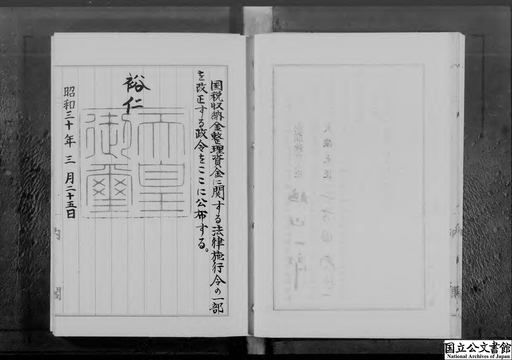 国税収納金整理資金に関する法律施行令の一部
を改正する政令をここに公布する。
裕仁
天皇
御璽
昭和三十年三月二十五日
内
閣
国立公文書館
National Archives of Japan